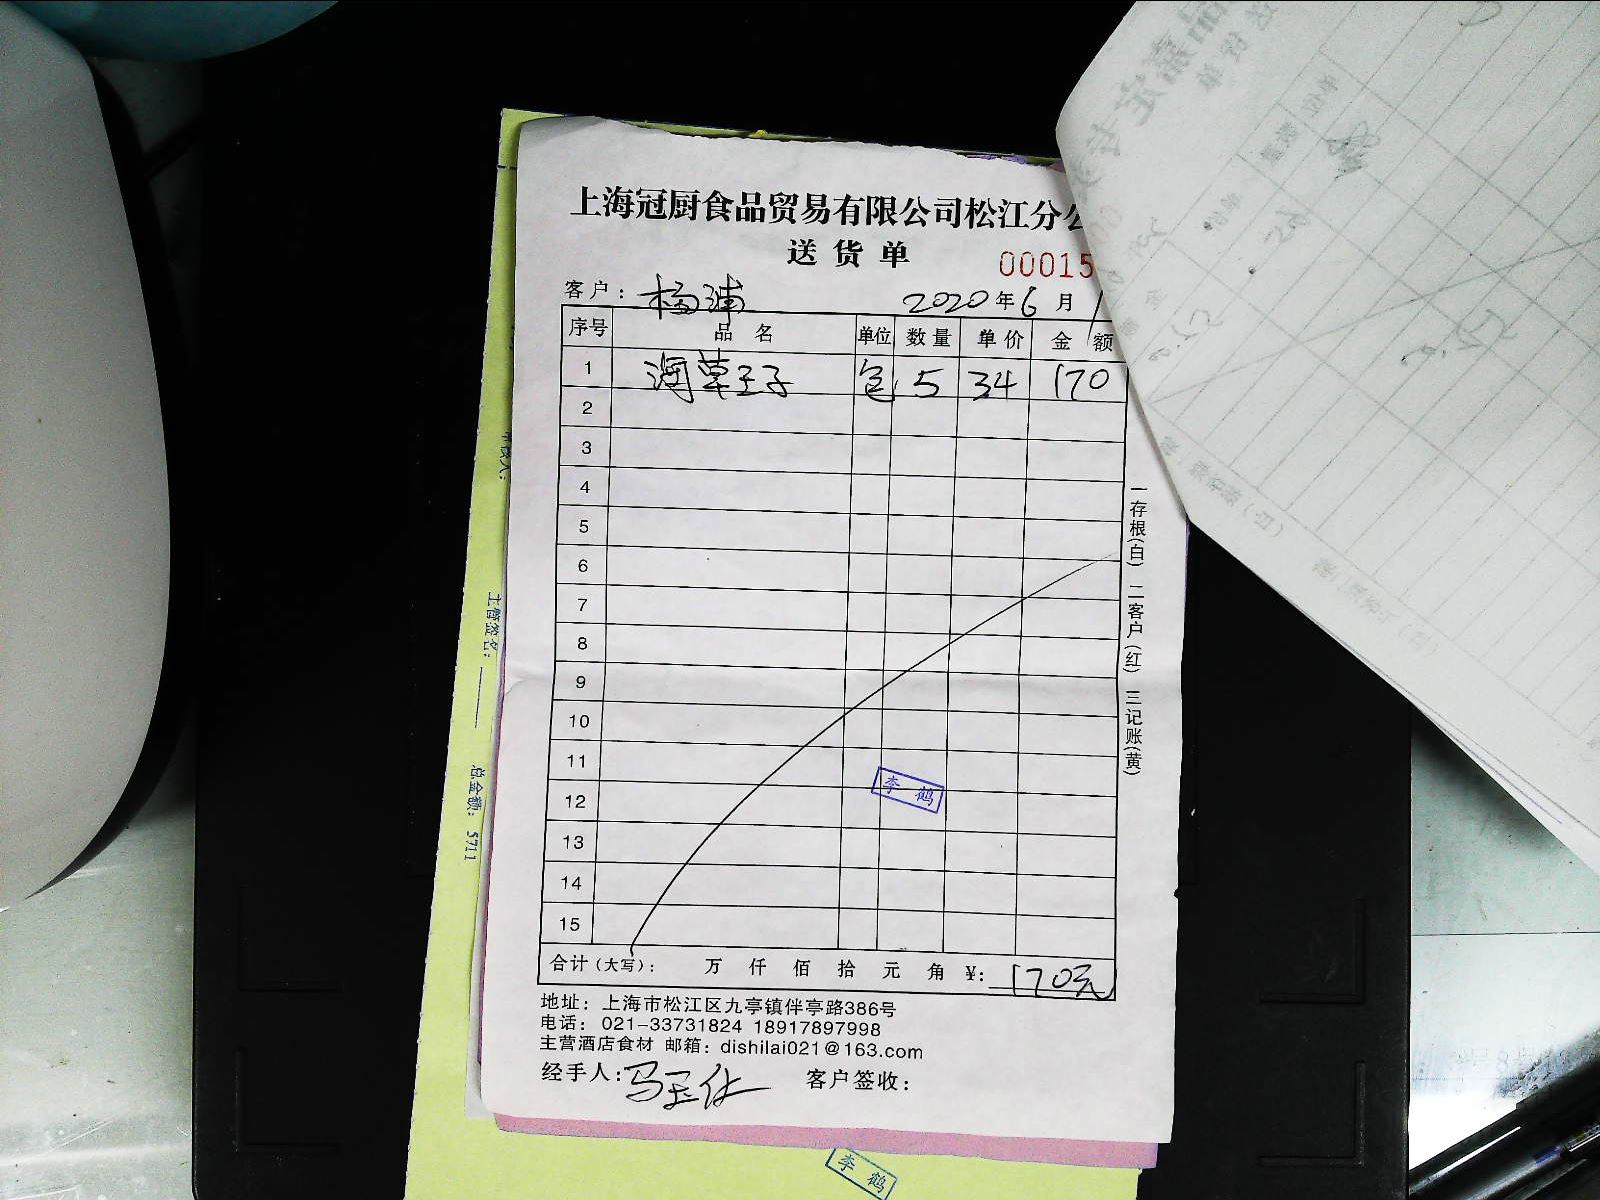 上海冠厨食品贸易有限公司松江分公
送货单
00015
客户: 杨浦 2020年6月1
序号 品名 单位 数量 单价 金额
1 海草王子 包 5 34 170
2
3
4
5
6
7
8
9
10
11
李鹤
12
13
14
15
合计(大写): 万 仟 佰 拾 元 角 ¥: 170元
地址: 上海市松江区九亭镇伴亭路386号
电话: 021-33731824 18917897998
主营酒店食材 邮箱: dishilai021@163.com
经手人: 客户签收:
一存根(白) 二客户(红) 三记账(黄)
主管签名:
总金额: 5711
李鹤